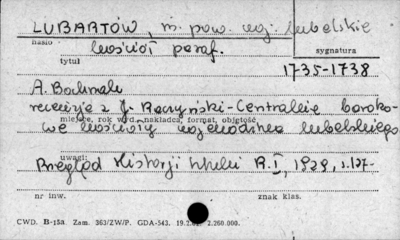 LUBARTÓW, m. pow. woj. lubelskie
hasło
kościół paraf.
sygnatura
tytuł
1735-1738
A. Bochnak
recenzja z J. Raczyński-Centralne baroko-
miejsce, rok wyd., nakładca, format, objętość
we kościoły województwa lubelskiego
uwagi
Przegląd Historji Sztuki R.I, 1929, s.127-
nr inw.
znak klas.
CWD. B-15a. Zam. 363/ZW/P. GDA-543. 2.260.000.